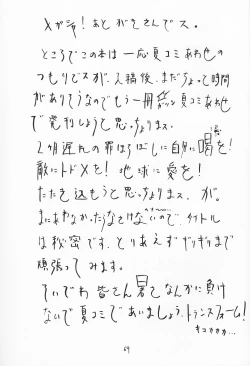 メガシャ!あとがきさんでス。
ところでこの本は一応夏コミあわせの
つもりでスガ、入稿後、まだちょって時間
がありそうなのでもう一冊 夏コミあわせ
で発刊しようと思っちょりまス。
2ヶ月遅れの罪ほろぼしに自分に喝を!
敵にトドメを!地球に愛を!
たたき込もうと思っちょりまス、が。
まにあわなかったらなさけないので、タイトル
は秘密です、とりあえずギリギリまで
頑張ってみます。
そいでわ皆さん暑さなんかに負け
ないで夏コミであいましょう、トランスフォーム!
ギゴガガガ…
69